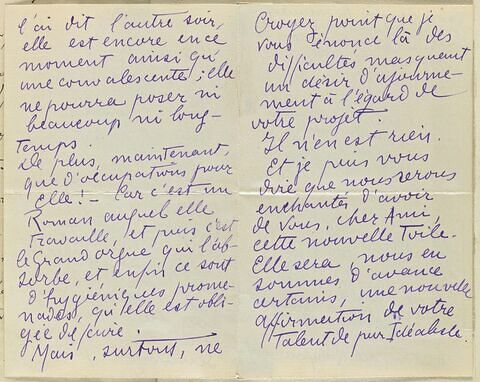 l'ai dit l'autre soir,
elle est encore en ce
moment ainsi qu'
une convalescente ; elle
ne pourra poser ni
beaucoup ni long-
temps.
De plus, maintenant,
que d'occupations pour
Elle ! — Car c'est un
Roman auquel elle
travaille, et puis c'est
le Grand orgue qui l'ab-
sorbe, et enfin ce sont
d'hygiéniques prome-
nades, qu'elle est obli-
gée de faire.
Mais, surtout, ne
Croyez point que je
vous énonce là des
difficultés masquant
un désir d'ajourne-
ment à l'égard de
votre projet.
Il n'en est rien.
Et je puis vous
dire que nous serons
enchantés d'avoir
de vous, cher Ami,
cette nouvelle Toile.
Elle sera, nous en
sommes d'avance
certains, une nouvelle
affirmation de votre
Talent de pur Idéaliste.